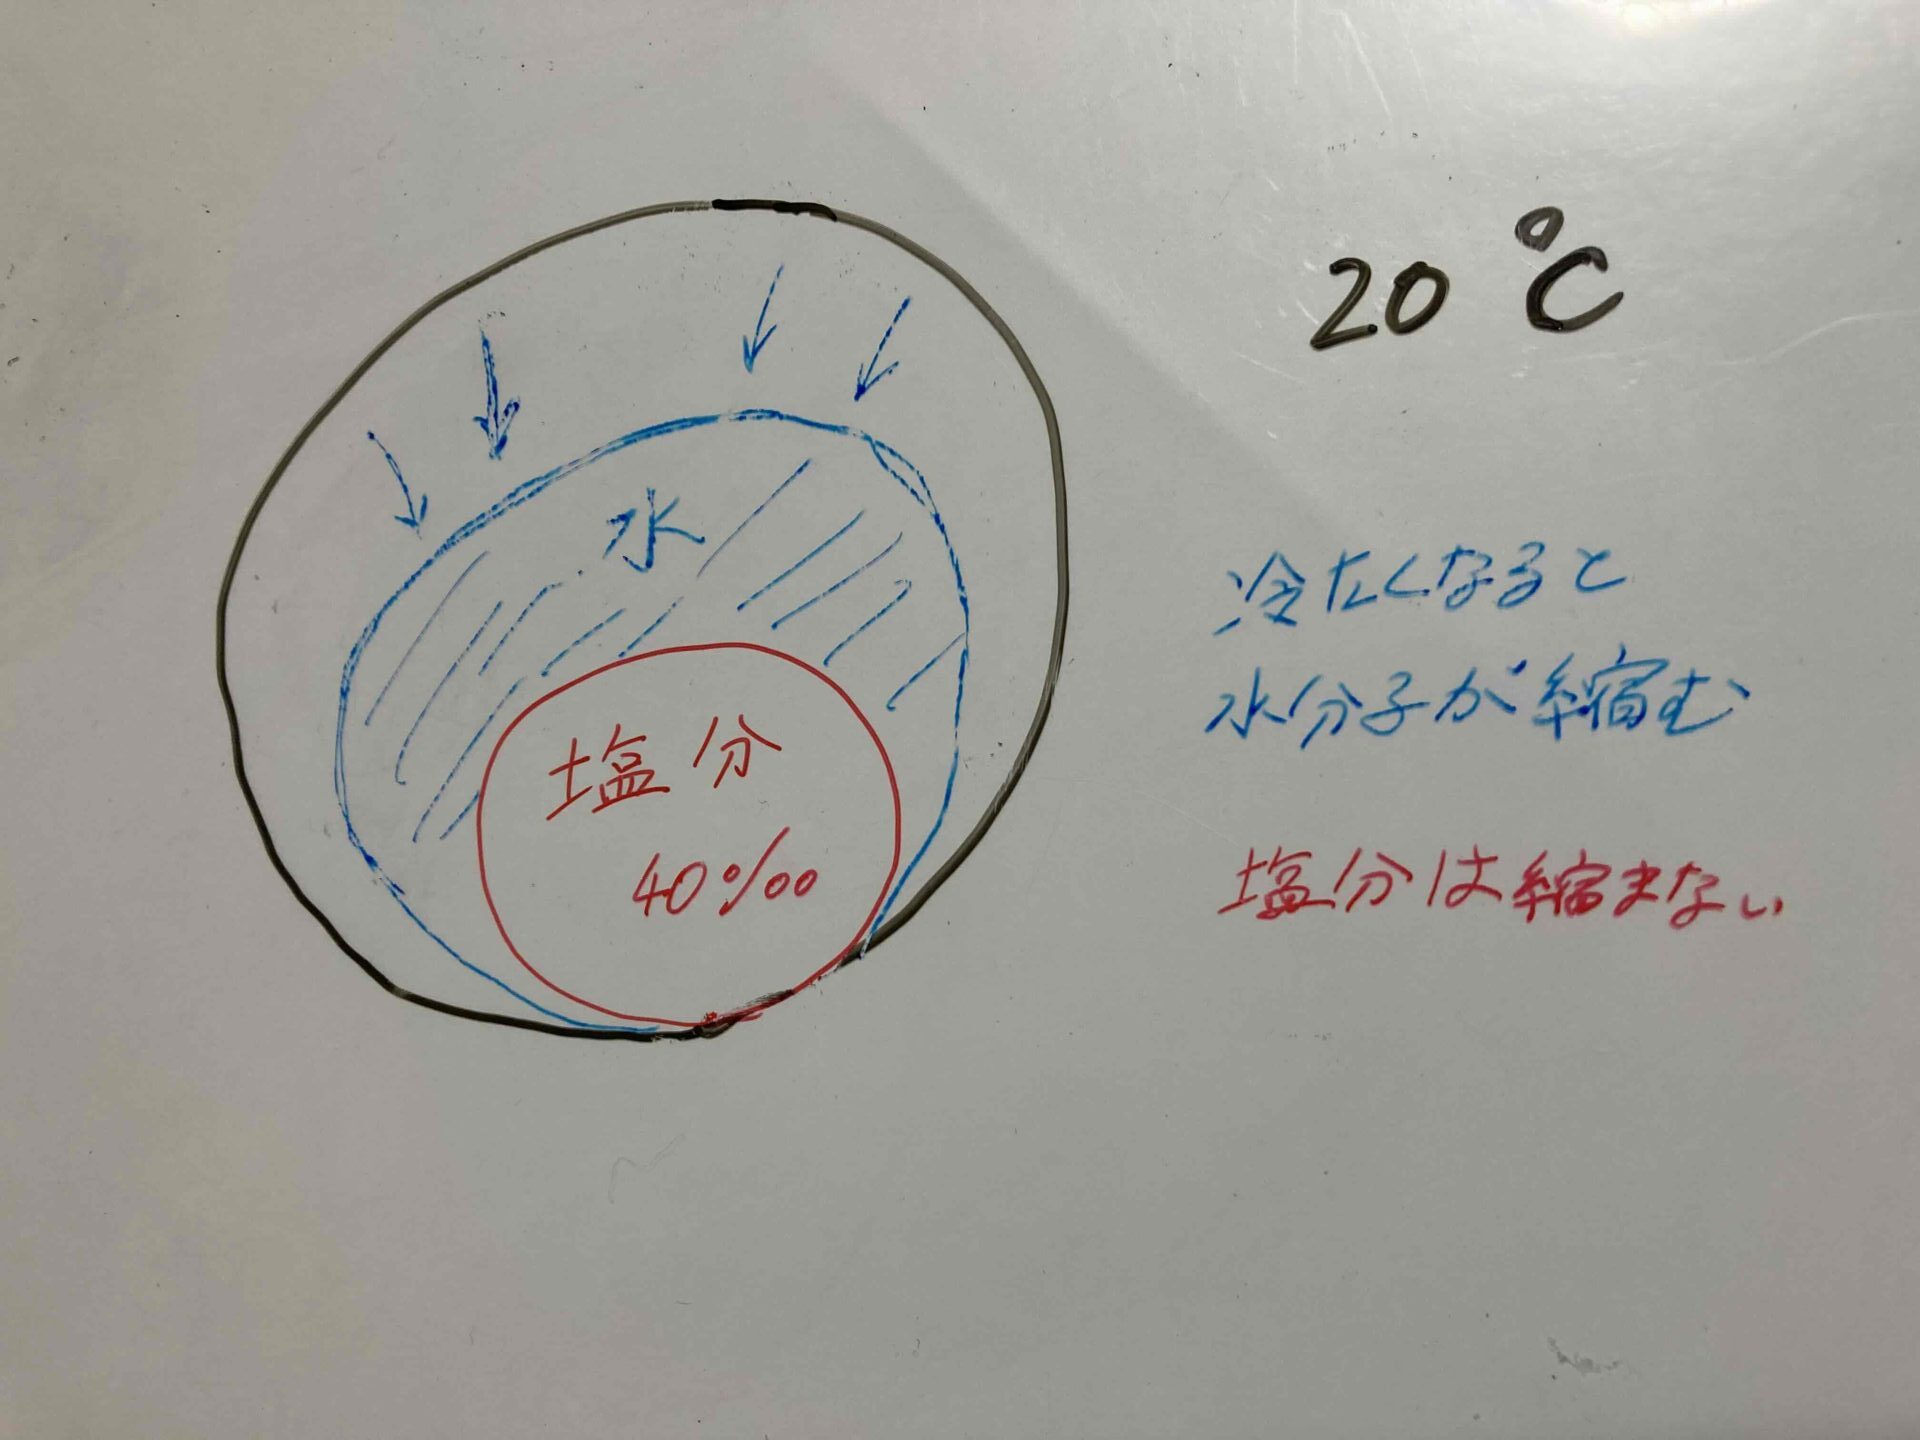 20℃
水
冷たくなると
水分子が縮む
塩分
40‰
塩分は縮まない